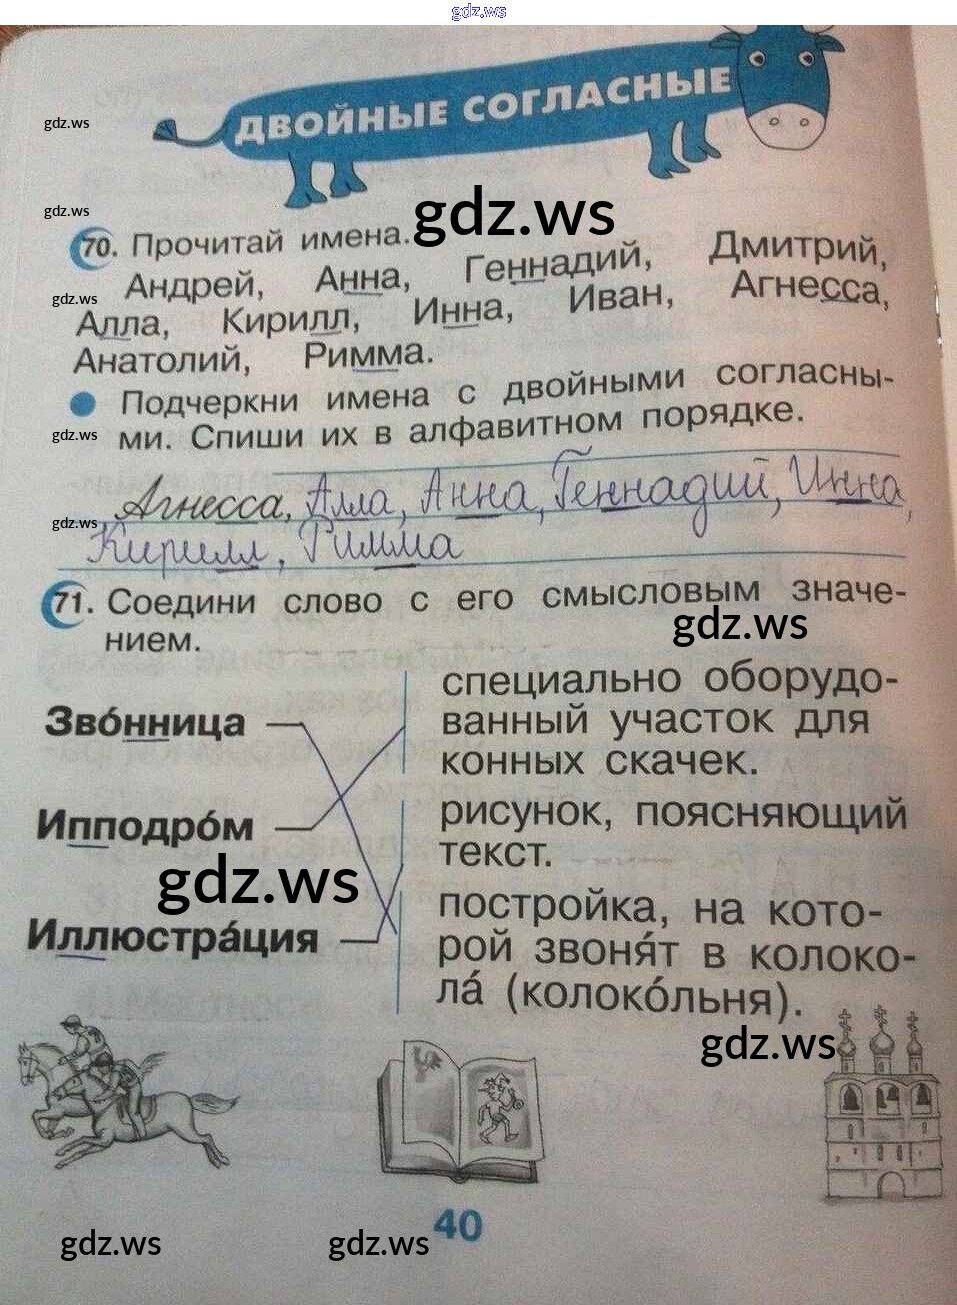 gdz.ws
ДВОЙНЫЕ СОГЛАСНЫЕ
gdz.ws
gdz.ws
gdz.ws
70. Прочитай имена.
Андрей, Анна, Геннадий, Дмитрий,
gdz.ws
Алла, Кирилл, Инна, Иван, Агнесса,
Анатолий, Римма.
Подчеркни имена с двойными согласны-
gdz.ws
ми. Спиши их в алфавитном порядке.
Агнесса, Алла, Анна, Геннадий, Инна,
gdz.ws
Кирилл, Римма
71. Соедини слово с его смысловым значе-
нием.
gdz.ws
Звóнница
специально оборудо-
ванный участок для
конных скачек.
Ипподрóм
рисунок, поясняющий
текст.
gdz.ws
Иллюстрáция
постройка, на кото-
рой звоня́т в колоко-
лá (колокóльня).
gdz.ws
40
gdz.ws
gdz.ws